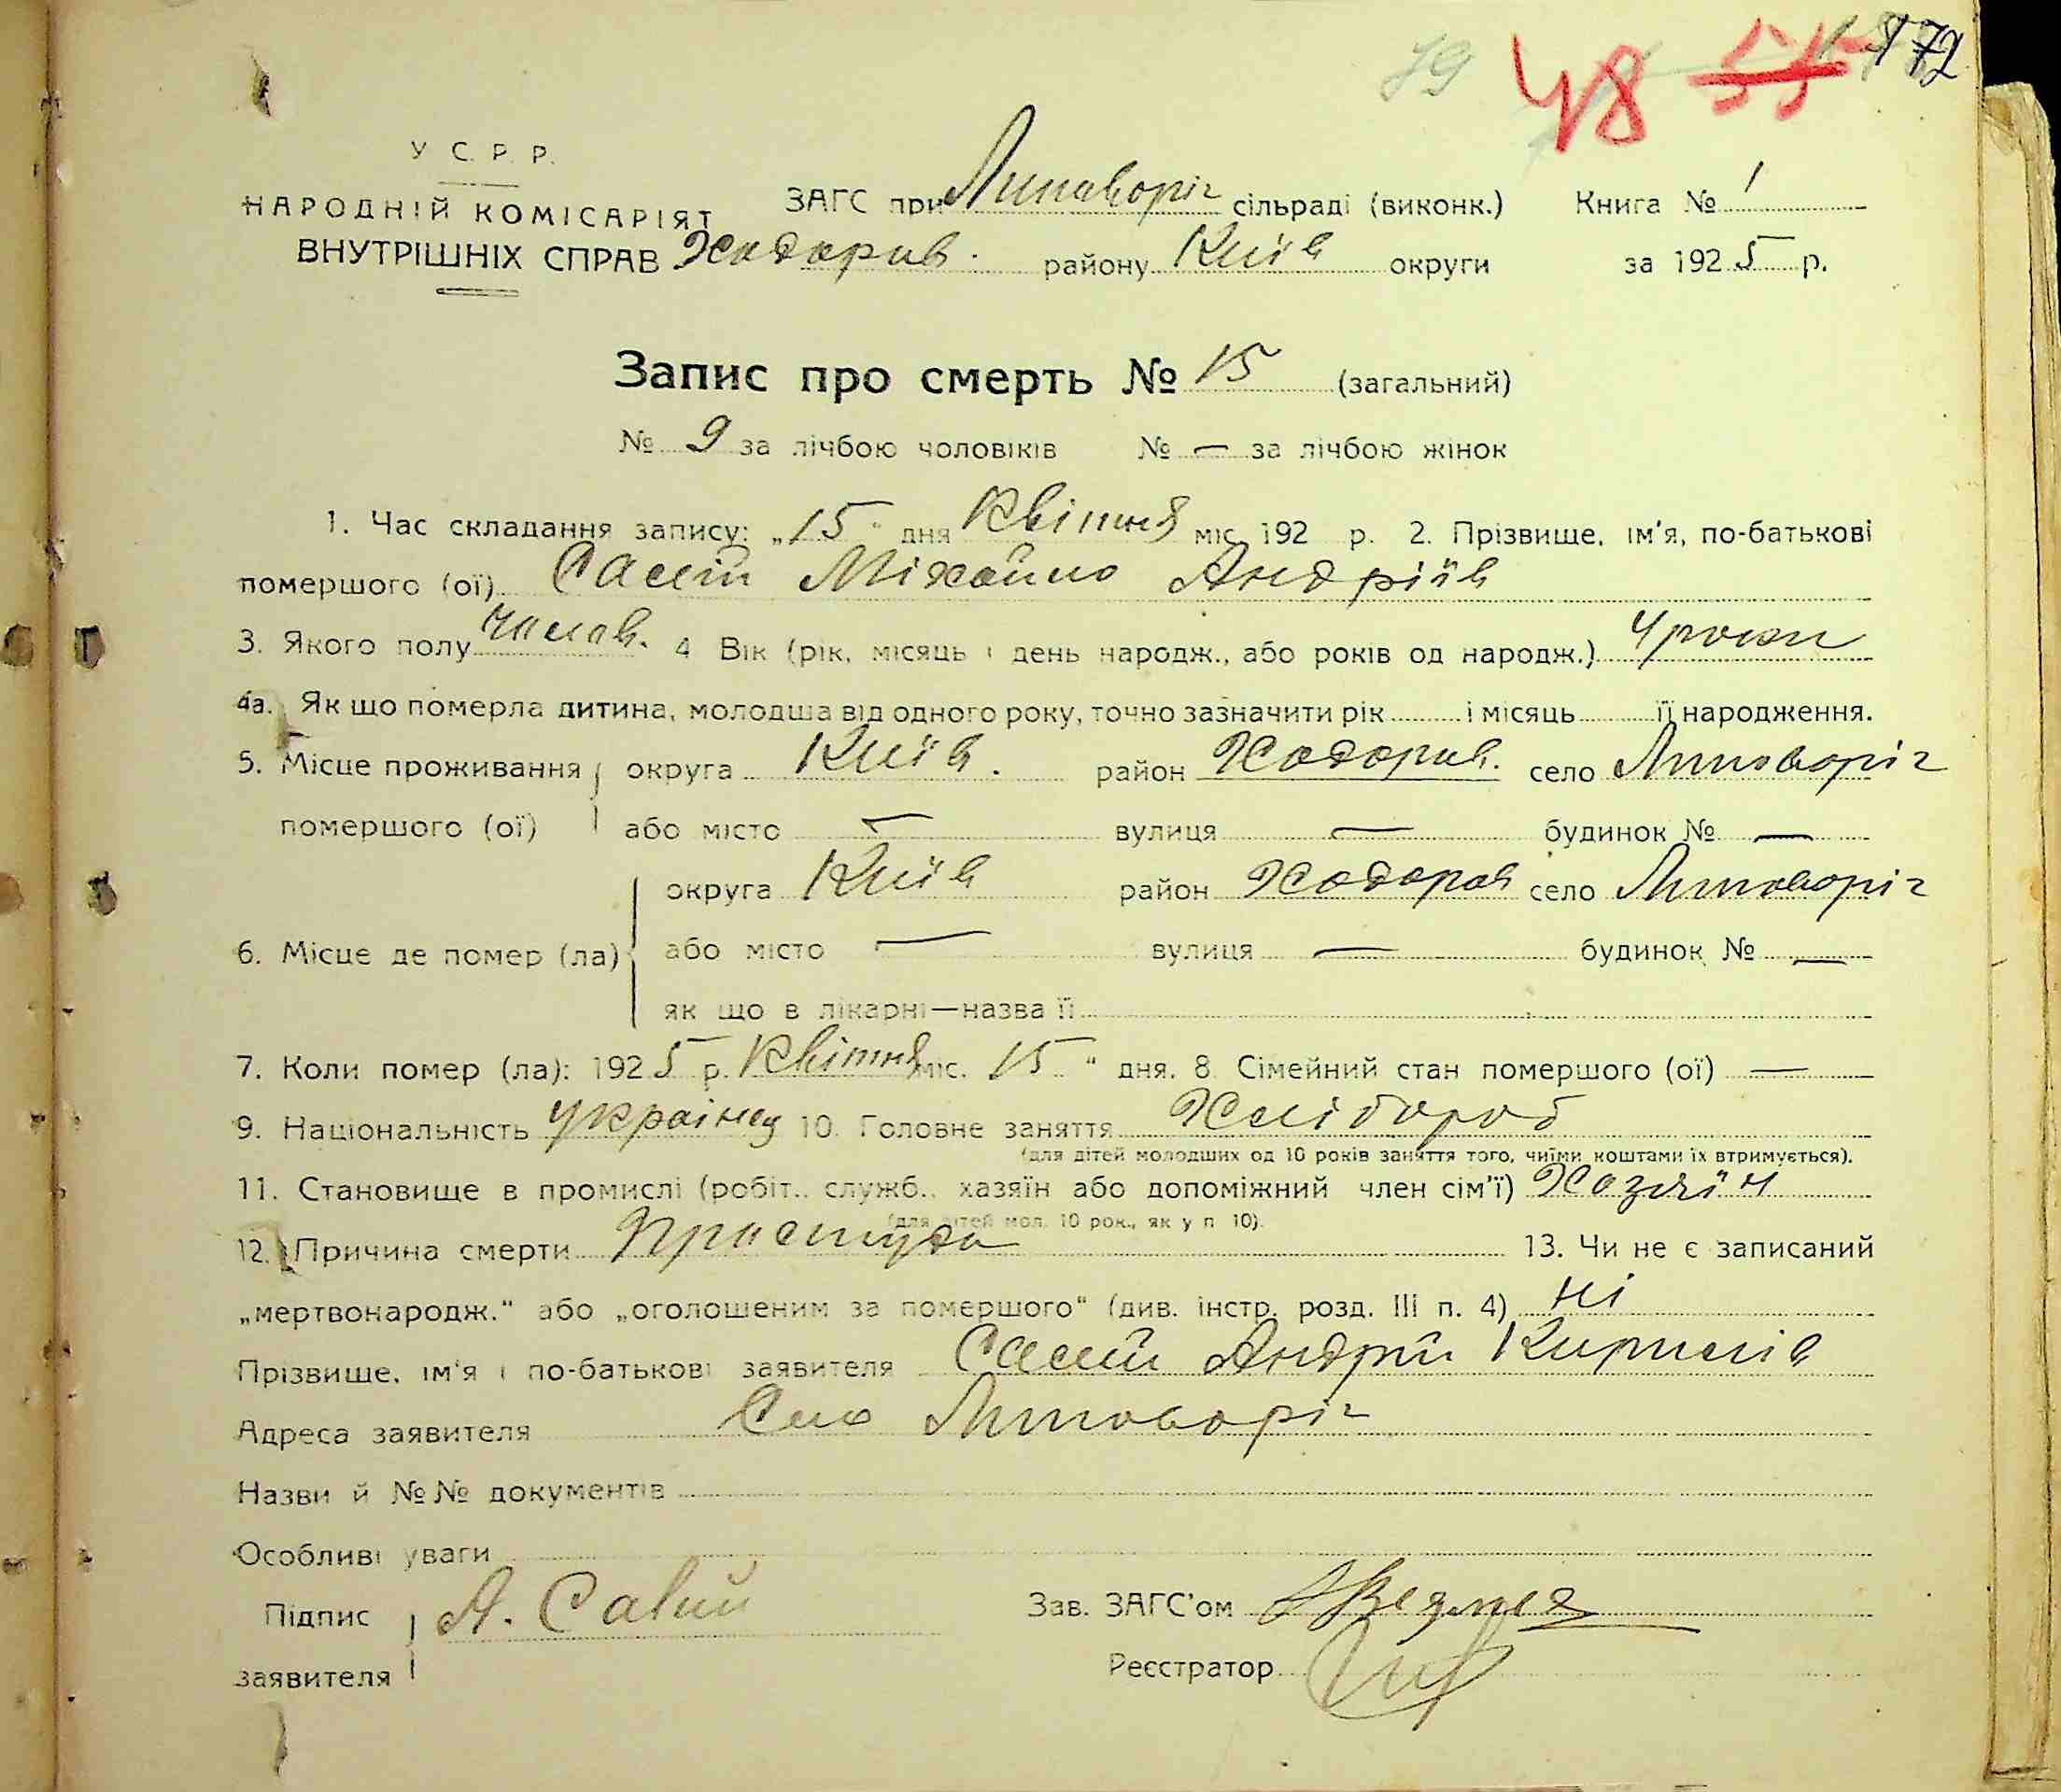 79 48 55 172
У. С. Р. Р.
НАРОДНІЙ КОМІСАРІЯТ
ВНУТРІШНІХ СПРАВ
ЗАГС при Липоворіг сільраді (виконк.) Книга № 1
Ходорив. району Київ округи за 1925 р.
Запис про смерть № 15 (загальний)
№ 9 за лічбою чоловіків № — за лічбою жінок
1. Час складання запису: „15“ дня Квітня міс. 192 р. 2. Прізвище, ім'я, по-батькові
помершого (ої) Міхайло Андріїв
3. Якого полу Чолов. 4 Вік (рік, місяць і день народж., або років од народж.) 4 роки
4а. Як що померла дитина, молодша від одного року, точно зазначити рік і місяць її народження.
5. Місце проживання округа Київ. район Ходорив. село Липоворіг
помершого (ої) або місто — вулиця — будинок № —
округа Київ район Ходоров село Липоворіг
6. Місце де помер (ла) або місто — вулиця — будинок № —
як що в лікарні—назва її
7. Коли помер (ла): 1925 р. Квітня міс. 15“ дня. 8. Сімейний стан помершого (ої) —
9. Національність українец 10. Головне заняття Хлібороб
(для дітей молодших од 10 років заняття того, чиїми коштами їх втримується).
11. Становище в промислі (робіт., служб., хазяїн або допоміжний член сім'ї) Хозяїн
(для дітей мол. 10 рок., як у п 10).
12. Причина смерти Простуда 13. Чи не є записаний
„мертвонародж.“ або „оголошеним за помершого“ (див. інстр. розд. III п. 4) Ні
Прізвище, ім'я і по-батькові заявителя Андрій Кирилів
Адреса заявителя Село Липоворіг
Назви й №№ документів
Особливі уваги
Підпис заявителя А. Савий
Зав. ЗАГС'ом
Реєстратор